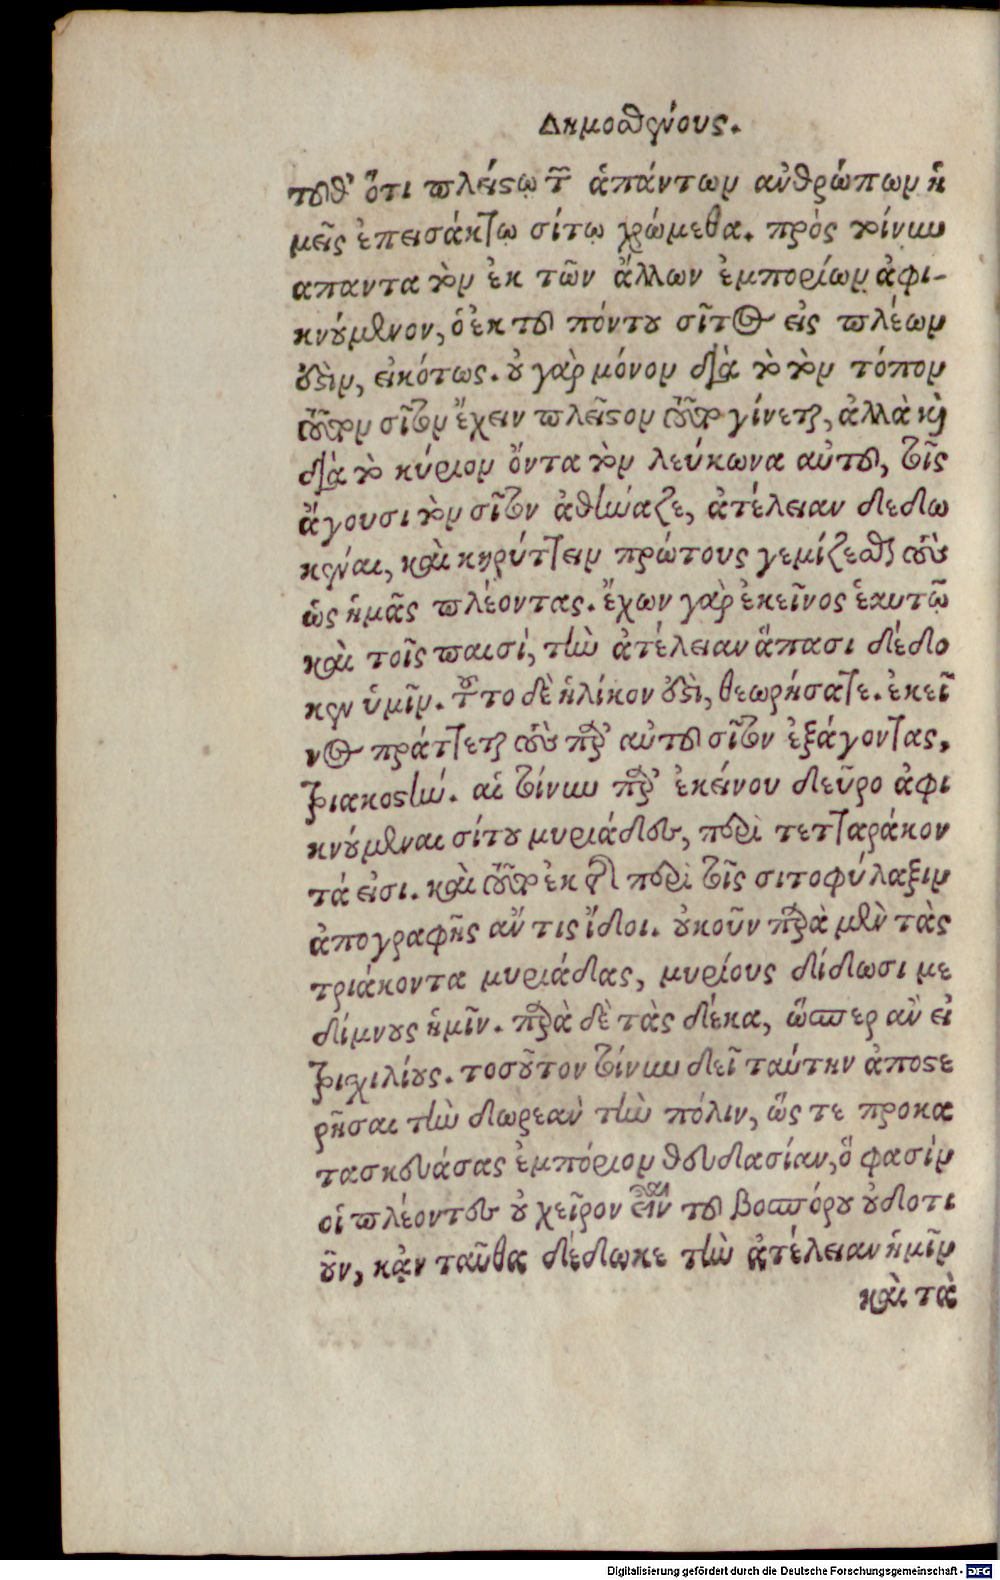 Δημοσθένους.
τοῦθ' ὅτι πλείστῳ τῶν ἁπάντων ἀνθρώπων ἡ
μεῖς ἐπεισάκτῳ σίτῳ χρώμεθα. πρὸς τοίνυν
απαντα τὸν ἐκ τῶν ἄλλων ἐμπορίων ἀφι-
κνούμενον, ὁ ἐκ τοῦ πόντου σῖτος εἰς πλέων
ὅδὶν, εἰκότως. οὐ γὰρ μόνον διὰ τὸ τὸν τόπον
τοῦτον σῖτον ἔχειν πλεῖστον τοῦτο γίνεται, ἀλλὰ καὶ
διὰ τὸ κύριον ὄντα τὸν λεύκωνα αὐτοῦ, τοῖς
ἄγουσι τὸν σῖτον ἀθήναζε, ἀτέλειαν δεδω
κέναι, καὶ κηρύττειν πρώτους γεμίζεσθαι τοὺς
ὡς ἡμᾶς πλέοντας. ἔχων γὰρ ἐκεῖνος ἑαυτῷ
καὶ τοῖς παισί, τὴν ἀτέλειαν ἅπασι δέδω
κεν ὑμῖν. τοῦτο δὲ ἡλίκον ὅδὶ, θεωρήσατε. ἐκεῖ
νος πράττεται τοὺς παρ' αὐτοῦ σῖτον ἐξάγοντας,
τριακοστήν. αἱ τοίνυν παρ' ἐκείνου δεῦρο ἀφι
κνούμεναι σίτου μυριάδες, περὶ τετταράκον
τά εἰσι. καὶ τοῦτο ἐκ τῆς περὶ τοῖς σιτοφύλαξιν
ἀπογραφῆς ἄν τις ἴδοι. οὐκοῦν παρὰ μὲν τὰς
τριάκοντα μυριάδας, μυρίους δίδωσι με
δίμνους ἡμῖν. παρὰ δὲ τὰς δέκα, ὥσπερ ἂν εἰ
τριχιλίους. τοσοῦτον τοίνυν δεῖ ταύτην ἀποστε
ρῆσαι τὴν δωρεὰν τὴν πόλιν, ὥς τε προκα
τασκευάσας ἐμπόριον θευδασίαν, ὅ φασὶν
οἱ πλέοντες οὐ χεῖρον εἶναι τοῦ βοσπόρου οὐδοτι
οῦν, κᾀν ταῦθα δέδωκε τὴν ἀτέλειαν ἡμῖν
καὶ τὰ
Digitalisierung gefördert durch die Deutsche Forschungsgemeinschaft - DFG